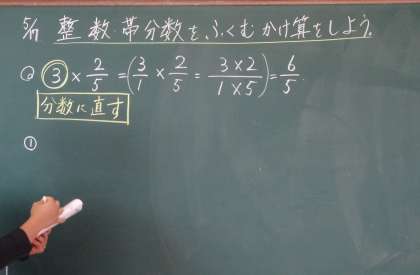 5/17 整数・帯分数を、ふくむかけ算をしよう。
⓪ ③ × 2/5 = (3/1 × 2/5 = 3×2/1×5) = 6/5
分数に直す
①